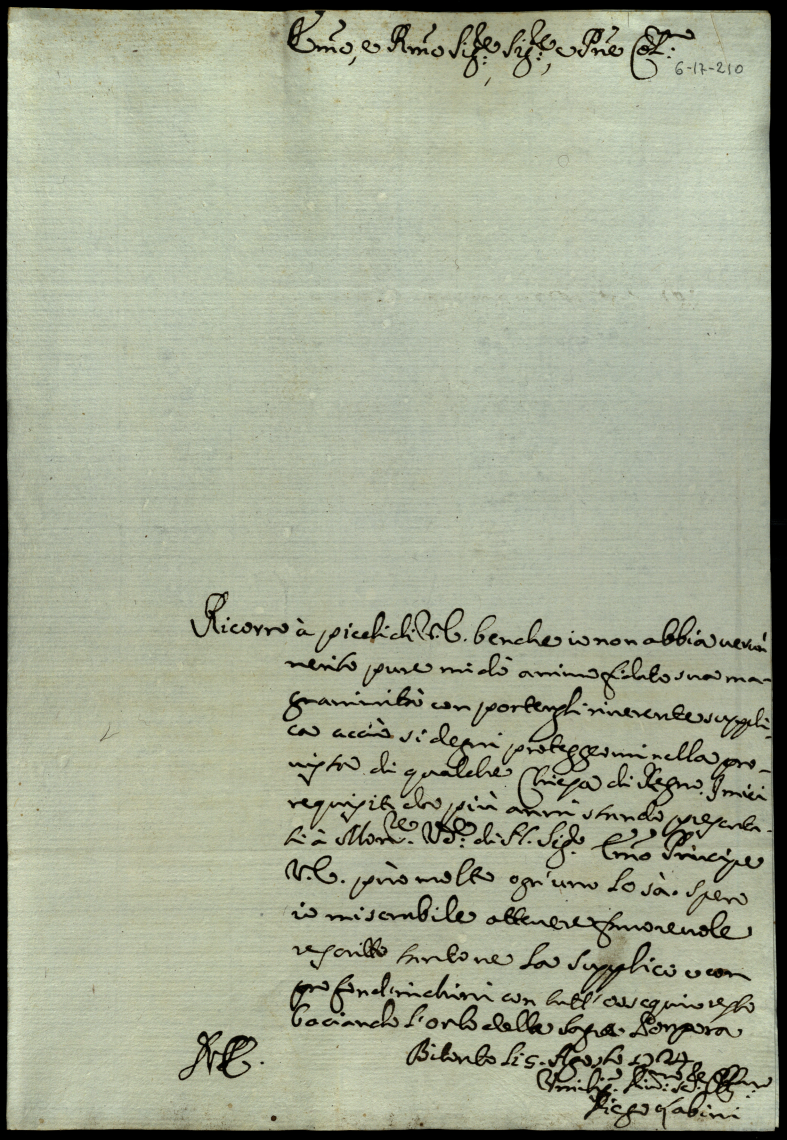 Em̃o, e Rm̃o Sig:re Sig:re, e Pñe Col:mo
6-17-210
Ricorro à piedi di V.E. benche io non abbia verun
merito pure mi dà animo fidato sua ma-
gnanimità con portergli riverente suppli-
ca acciò si degni proteggermi nella pro-
vista di qualche Chiesa di Regno. I miei
requisiti da più anni stando presenta-
ti à Mons.re Ud.re di S. S. Sig.re Em̃o Principe
V.E. può molto ogn'uno lo sà. Spero
io miserabile ottenere favorevole
rescritto tanto ne La supplico e con
profond'inchini con tutt'ossequio resto
baciando l'orlo della Sagra Porpora
Bitonto li 5. Agosto 1724
V.E.
Umiliss.
Diego Labini